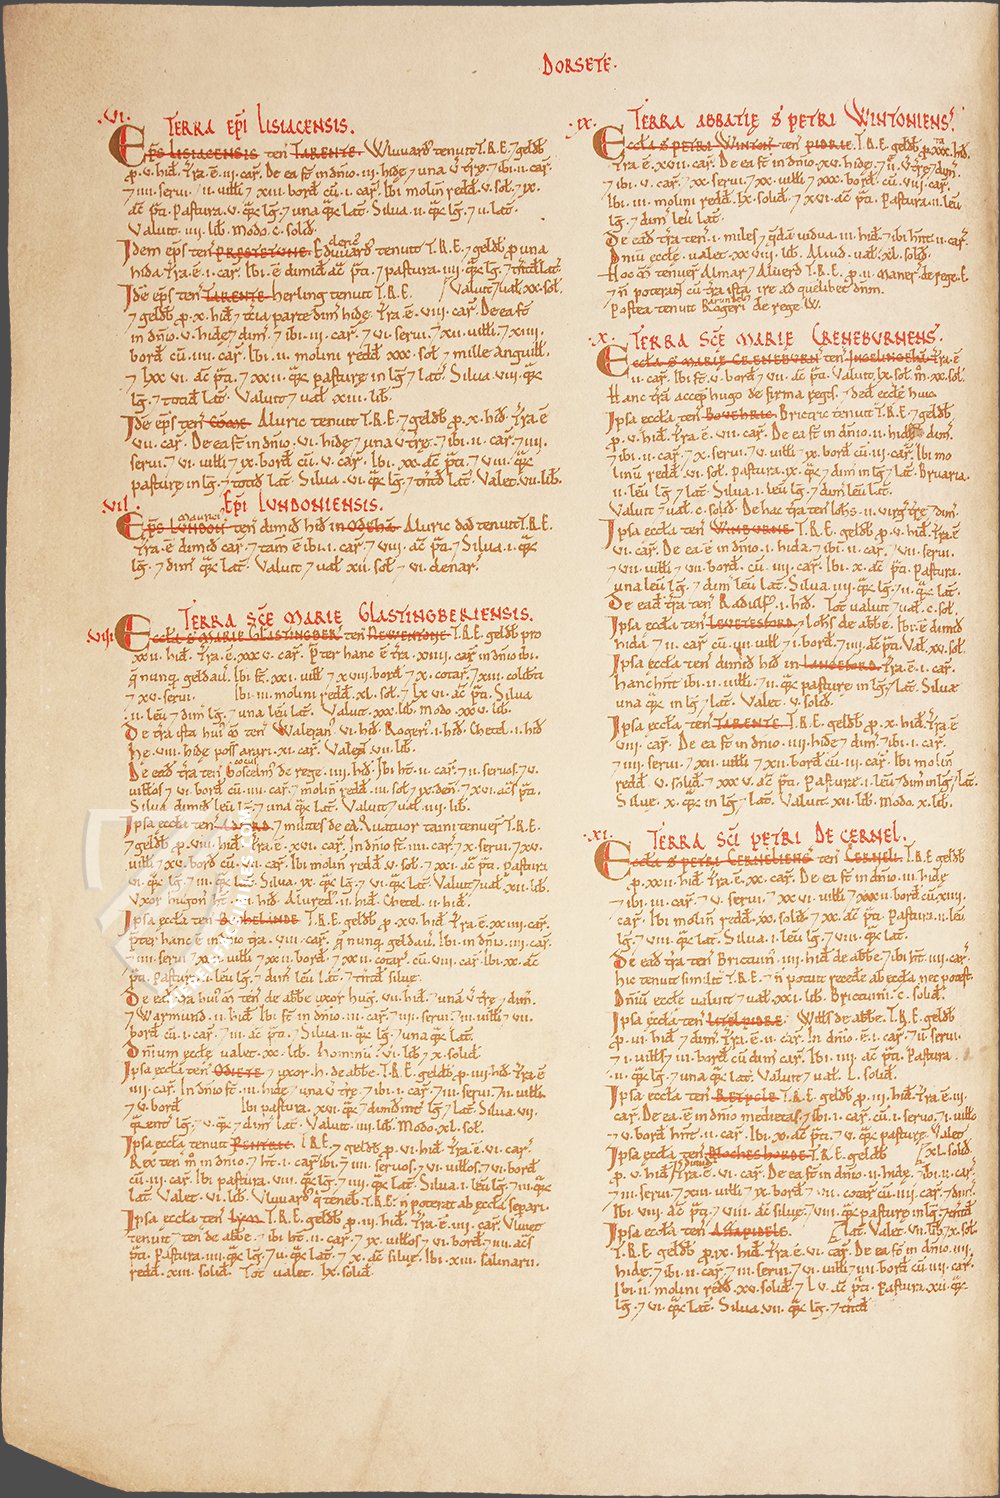 DORSETE.
.VI. TERRA EPI LISIACENSIS.
EPS LISIACENSIS ten TARENTE. Wluuard tenuit T.R.E. ⁊ geldb
p. v. hid. Tra. ē. iii. car. De ea st in dnio. iii. hidę ⁊ una v træ. ⁊ ibi. ii. car.
⁊ iiii. serui. ⁊ ii. uilli ⁊ xiii. bord cu. i. car. Ibi molin redd. v. sol. ⁊ ix.
ac pti. Pastura. v. qrk lg. ⁊ una qrk lat. Silua. ii. qrk lg. ⁊ ii. lat.
Valuit. iiii. lib. Modo. c. solid.
Idem eps ten PRESTETUNE. Eduuard cleric tenuit T.R.E. ⁊ geldb p una
hida. Tra. ē. i. car. Ibi. ē dimid ac pti. ⁊ pastura. iiii. qrk lg. ⁊ tntd lat.
Ide eps ten TARENTE. Herling tenuit T.R.E. Valuit ⁊ ual. xx. sol.
⁊ geldb. p. x. hid. ⁊ tcia parte dim hidę. Tra. ē. viii. car. De ea st
in dnio. v. hidę ⁊ dim. ⁊ ibi. iii. car. ⁊ vi. serui. ⁊ xii. uilli ⁊ xiiii.
bord cu. iiii. car. Ibi. ii. molini redd. xxx. sol. ⁊ mille anguill.
⁊ lxx vi. ac pti. ⁊ xx. ii. qrk pasturę in lg. ⁊ lat. Silua. viii. qrk
lg. ⁊ totid lat. Valuit ⁊ ual. xiii. lib.
Ide eps ten COME. Aluric tenuit T.R.E. ⁊ geldb. p. x. hid. Tra. ē
vii. car. De ea st in dnio. vi. hidę ⁊ una v træ. ⁊ ibi. ii. car. ⁊ iiii.
serui. ⁊ vi. uilli ⁊ ix. bord cu. v. car. Ibi. xx. ac pti. ⁊ viii. qrk
pasturę in lg. ⁊ totid lat. Silua. vi. qrk lg. ⁊ tntd lat. Valet. vii. lib.
.VII. EPI LUNDONIENSIS.
EPS LUNDON Maurici ten dimid hid in ODEHA. Aluric dod tenuit T.R.E.
Tra. ē dimid car. ⁊ tam ē ibi. i. car. ⁊ viii. ac pti. ⁊ Silua. i. qrk
lg. ⁊ dim qrk lat. Valuit ⁊ ual xii. sol. ⁊ vi. denar.
.VIII. TERRA SCE MARIE GLASTINGBERIENSIS.
Eccla S MARIE GLASTINGBER ten NEWENTONE. T.R.E. geldb pro
xx. ii. hid. Tra. ē. xxx v. car. Pter hanc ē tra. xiiii. car in dnio ibi.
q nunq geldauit. Ibi st. xxi. uilt ⁊ x viii. bord ⁊ x. cotar. ⁊ xiii. colibti
⁊ xv. serui. Ibi. iii. molini redd. xl. sol. ⁊ lx vi. ac pti. Silua
. ii. leu ⁊ dim lg. ⁊ una leu lat. Valuit. xxx. lib. Modo. xxv. lib.
De tra ista hui m ten Waleran. vi. hid. Rogeri. i. hid. Chetel. i. hid
De ead tra ten Goscelm cocus de rege. iiii. hid. Ibi ht. ii. car. ⁊ ii. seruos. ⁊ v.
uillos ⁊ vi. bord cu. iiii. car. ⁊ molin redd. iii. sol. ⁊ ix. den. ⁊ xvi. acs pti.
Silua dimid leu lg. ⁊ una qrk lat. Valuit ⁊ ual. iiii. lib.
Ipsa eccla ten ADFORD. T.R.E.
⁊ geldb. p. viii. hid. Tra. ē. xvi. car. In dnio st. iiii. car. ⁊ x. serui. ⁊ xv.
uilli ⁊ xv. bord cu. vii. car. Ibi molin redd. v. sol. ⁊ xxi. ac pti. Pastura
vi. qrk lg. ⁊ iii. qrk lat. Silua. ix. qrk lg. ⁊ vi. qrk lat. Valuit ⁊ ual. xii. lib.
Uxor hugon ht. hid. Alured. ii. hid. Chetel. ii. hid.
Ipsa eccla ten BOCHELANDE. T.R.E. geldb. p. xv. hid. Tra. ē. xx iiii. car.
pter hanc ē in dnio tra. viii. car. q nunq geldauit. Ibi in dnio. iiii. car.
De ea tra hui m ten de abbe uxor hug. vii. hid. ⁊ una v træ ⁊ dim.
⁊ Warmund. ii. hid. Ibi st in dnio. iii. car. ⁊ iiii. serui. ⁊ iii. uilli ⁊ vii.
bord cu. i. car. ⁊ iii. ac pti. ⁊ Silua. ii. qrk lg. ⁊ una qrk lat.
Dnium eccle ualet. xx. lib. Hominu. vi. lib. ⁊ x. solid
Ipsa eccla ten ODIETE. ⁊ uxor. h. de abbe. T.R.E. geldb. p. iiii. hid. Tra. ē
iiii. car. In dnio st. iii. hidę ⁊ una v træ. ⁊ ibi. i. car. ⁊ iii. serui. ⁊ ii. uilli.
⁊ v. bord Ibi pastura. xvi. qrk ⁊ dimid int lg ⁊ lat. Silua. vii.
qrent lg. ⁊ v. qrk ⁊ dim lat. Valuit. iiii. lib. Modo. xl. sol.
Ipsa eccla tenuit PENTRIC. T.R.E. ⁊ geldb. p. vi. hid. Tra. ē. vi. car.
Rex ten m in dnio. ⁊ ht. i. car ibi. ⁊ iiii. seruos. ⁊ vi. uillos. ⁊ vi. bord
cu. iii. car. Ibi pastura. viii. qrk lg. ⁊ iiii. qrk lat. Silua. i. leu lg. ⁊ iii. qrk
lat. Valet. vi. lib. Wluuard q teneb T.R.E. n poterat ab eccla separi.
Ipsa eccla ten LYM. T.R.E. geldb. p. iii. hid. Tra. ē. iiii. car. Vluiet
tenuit ⁊ ten de abbe. ⁊ ibi ht. ii. car. ⁊ ix. uillos ⁊ vi. bord. ⁊ iiii. acs
pti. Pastura. iiii. qrk lg. ⁊ ii. qrk lat. ⁊ x. ac siluę. Ibi. xiii. salinarii.
redd. xiii. solid. Tot ualet. lx. solid.
.IX. TERRA ABBATIĘ S PETRI WINTONIENS.
Eccla S PETRI WINTON ten PIDRIE. T.R.E. geldb. p. xxx. hid.
Tra. ē. xvii. car. De ea st in dnio. xv. hidę. ⁊ ii. v træ ⁊ dim.
⁊ ibi. v. car. ⁊ xx. serui. ⁊ xx. uilli ⁊ xxx. bord. cu. viii. car.
Ibi. iii. molini redd. lx. solid. ⁊ xvi. ac pti. Pastura. ii. leu
lg. ⁊ dim leu lat.
De ead tra ten. i. miles ⁊ qda uidua. iii. hid. ⁊ ibi hnt. ii. car.
Dniu eccle. ualet. xx viii. lib. Aliud. ual. xl. solid.
Hoc m tenuer Almar ⁊ Aluerd T.R.E. p. ii. maner de rege. E.
⁊ n poteran cu tra ista ire ad quelibet dnm.
Postea tenuit Rogeri arundel de rege. W.
.X. TERRA SCE MARIE CRENEBURNENS.
Eccla S MARIE CRENEBURN ten INGELINGEHA. Tra. ē
ii. car. Ibi st. v. bord ⁊ vii. ac pti. Valuit. lx. sol. m. xx. sol.
Hanc tra accep hugo de firma regis. ⁊ ded eccle huic.
Ipsa eccla ten BOVEHRIC. Brictric tenuit T.R.E. ⁊ geldb
p. v. hid. Tra. ē. vii. car. De ea st in dnio. ii. hidę ⁊ dim.
⁊ ibi. ii. car. ⁊ x. serui. ⁊ v. uilli ⁊ ix. bord cu. iii. car. Ibi mo
linu redd. vi. sol. Pastura. ix. qrk ⁊ dim in lg. ⁊ lat. Bruaria.
ii. leu lg. ⁊ lat. Silua. i. leu lg. ⁊ dim leu lat.
Valuit ⁊ ual. c. solid. De hac tra ten Iohs. ii. virg træ ⁊ dim.
Ipsa eccla ten WINBURNE. T.R.E. geldb. p. v. hid. Tra. ē
vi. car. De ea. ē in dnio. i. hida. ⁊ ibi. ii. car. ⁊ vii. serui.
⁊ vii. uilli ⁊ vii. bord. cu. iii. car. Ibi. x. ac pti. Pastura.
una leu lg. ⁊ dim leu lat. Silua. iii. qrk lg. ⁊ ii. qrk lat.
De ead tra ten Radulf. i. hid. Tot ualuit ⁊ ual. c. sol.
Ipsa eccla ten LEVETESFORD. ⁊ Iohs de abbe. Ibi. ē dimid
Ipsa eccla ten dimid hid in LANGEFORD. Tra. ē. i. car.
Hanc hnt ibi. ii. uilli. ⁊ ii. qrk pasturę in lg. ⁊ lat. Siluæ
una qrk in lg. ⁊ lat. Valet. v. solid.
Ipsa eccla ten TARENTE. T.R.E. geldb. p. x. hid. Tra. ē
viii. car. De ea st in dnio. iiii. hidę ⁊ dim. ⁊ ibi. i. car.
⁊ iiii. serui. ⁊ xii. uilli ⁊ xii. bord cu. iii. car. Ibi molin
redd. v. solid. ⁊ xxx v. ac pti. Pasturæ. i. leu ⁊ dim in lg. ⁊ lat.
Siluę. x. qrk in lg. ⁊ lat. Valuit. xii. lib. Modo. x. lib.
.XI. TERRA SCI PETRI DE CERNEL.
Eccla S PETRI CERNELIENS ten CERNELI. T.R.E. geldb
p. xx ii. hid. Tra. ē. xx. car. De ea st in dnio. iii. hidę
⁊ ibi. iii. car. ⁊ v. serui. ⁊ xx vi. uilli ⁊ xxx ii. bord cu. xiiii.
car. Ibi molin redd. xx. solid. ⁊ xx. ac pti. Pastura. ii. leu
lg. ⁊ viii. qrk lat. Silua. i. leu lg. ⁊ viii. qrk lat.
De ead tra ten Brictuin. iiii. hid de abbe. ⁊ ibi ht. iiii. car.
hic tenuit similit T.R.E. ⁊ n potuit recede ab eccla nec potest.
Dniu eccle ualuit ⁊ ual. xxi. lib. Brictuini. c. solid.
Ipsa eccla ten LITELPIDRE. Wills de abbe. T.R.E. geldb
p. iii. hid ⁊ dim. Tra. ē. ii. car. In dnio. ē. i. car. ⁊ ii. serui.
⁊ i. uills ⁊ iii. bord cu dim car. Ibi. iiii. ac pti. Pastura
. ii. qrk lg. ⁊ una qrk lat. Valuit ⁊ ual. l. solid.
Ipsa eccla ten RETPOLE. T.R.E. geldb. p. iii. hid. Tra. ē. iii.
car. De ea. ē in dnio medietas. ⁊ ibi. i. car. cu. i. seruo. ⁊ i. uillo
⁊ v. bord hnt. ii. car. Ibi. x. ac pti. ⁊ v. qrk pasturę. Valet
Ipsa eccla ten BLOCHESHORDE. T.R.E. geldb xl. solid.
p. v. hid ⁊ dimid. Tra. ē. vi. car. De ea st in dnio. ii. hidę. ⁊ ibi. ii. car.
Ibi. viii. ac pti. ⁊ viii. ac siluę. ⁊ viii. qrk pasturę in lg. ⁊ tntd
Ipsa eccla ten AFFAPIDELE. lat. Valet. vii. lib. ⁊ x. sol.
T.R.E. geldb. p. ix. hid. Tra. ē. vi. car. De ea st in dnio. iiii.
hidę. ⁊ ibi. ii. car. ⁊ iii. serui. ⁊ vi. uilli ⁊ iiii. bord cu. iiii. car.
Ibi. ii. molini redd. xx. solid. ⁊ l v. ac pti. Pastura. xii. qrk
lg. ⁊ vi. qrk lat. Silua. vii. qrk lg. ⁊ tntd